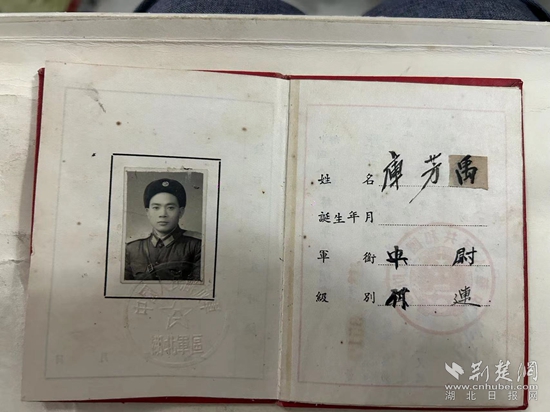 湖北軍區
姓名 庫芳禹
誕生年月
軍銜 中尉
級別 連
荆楚网
www.cnhubei.com
湖北日报网